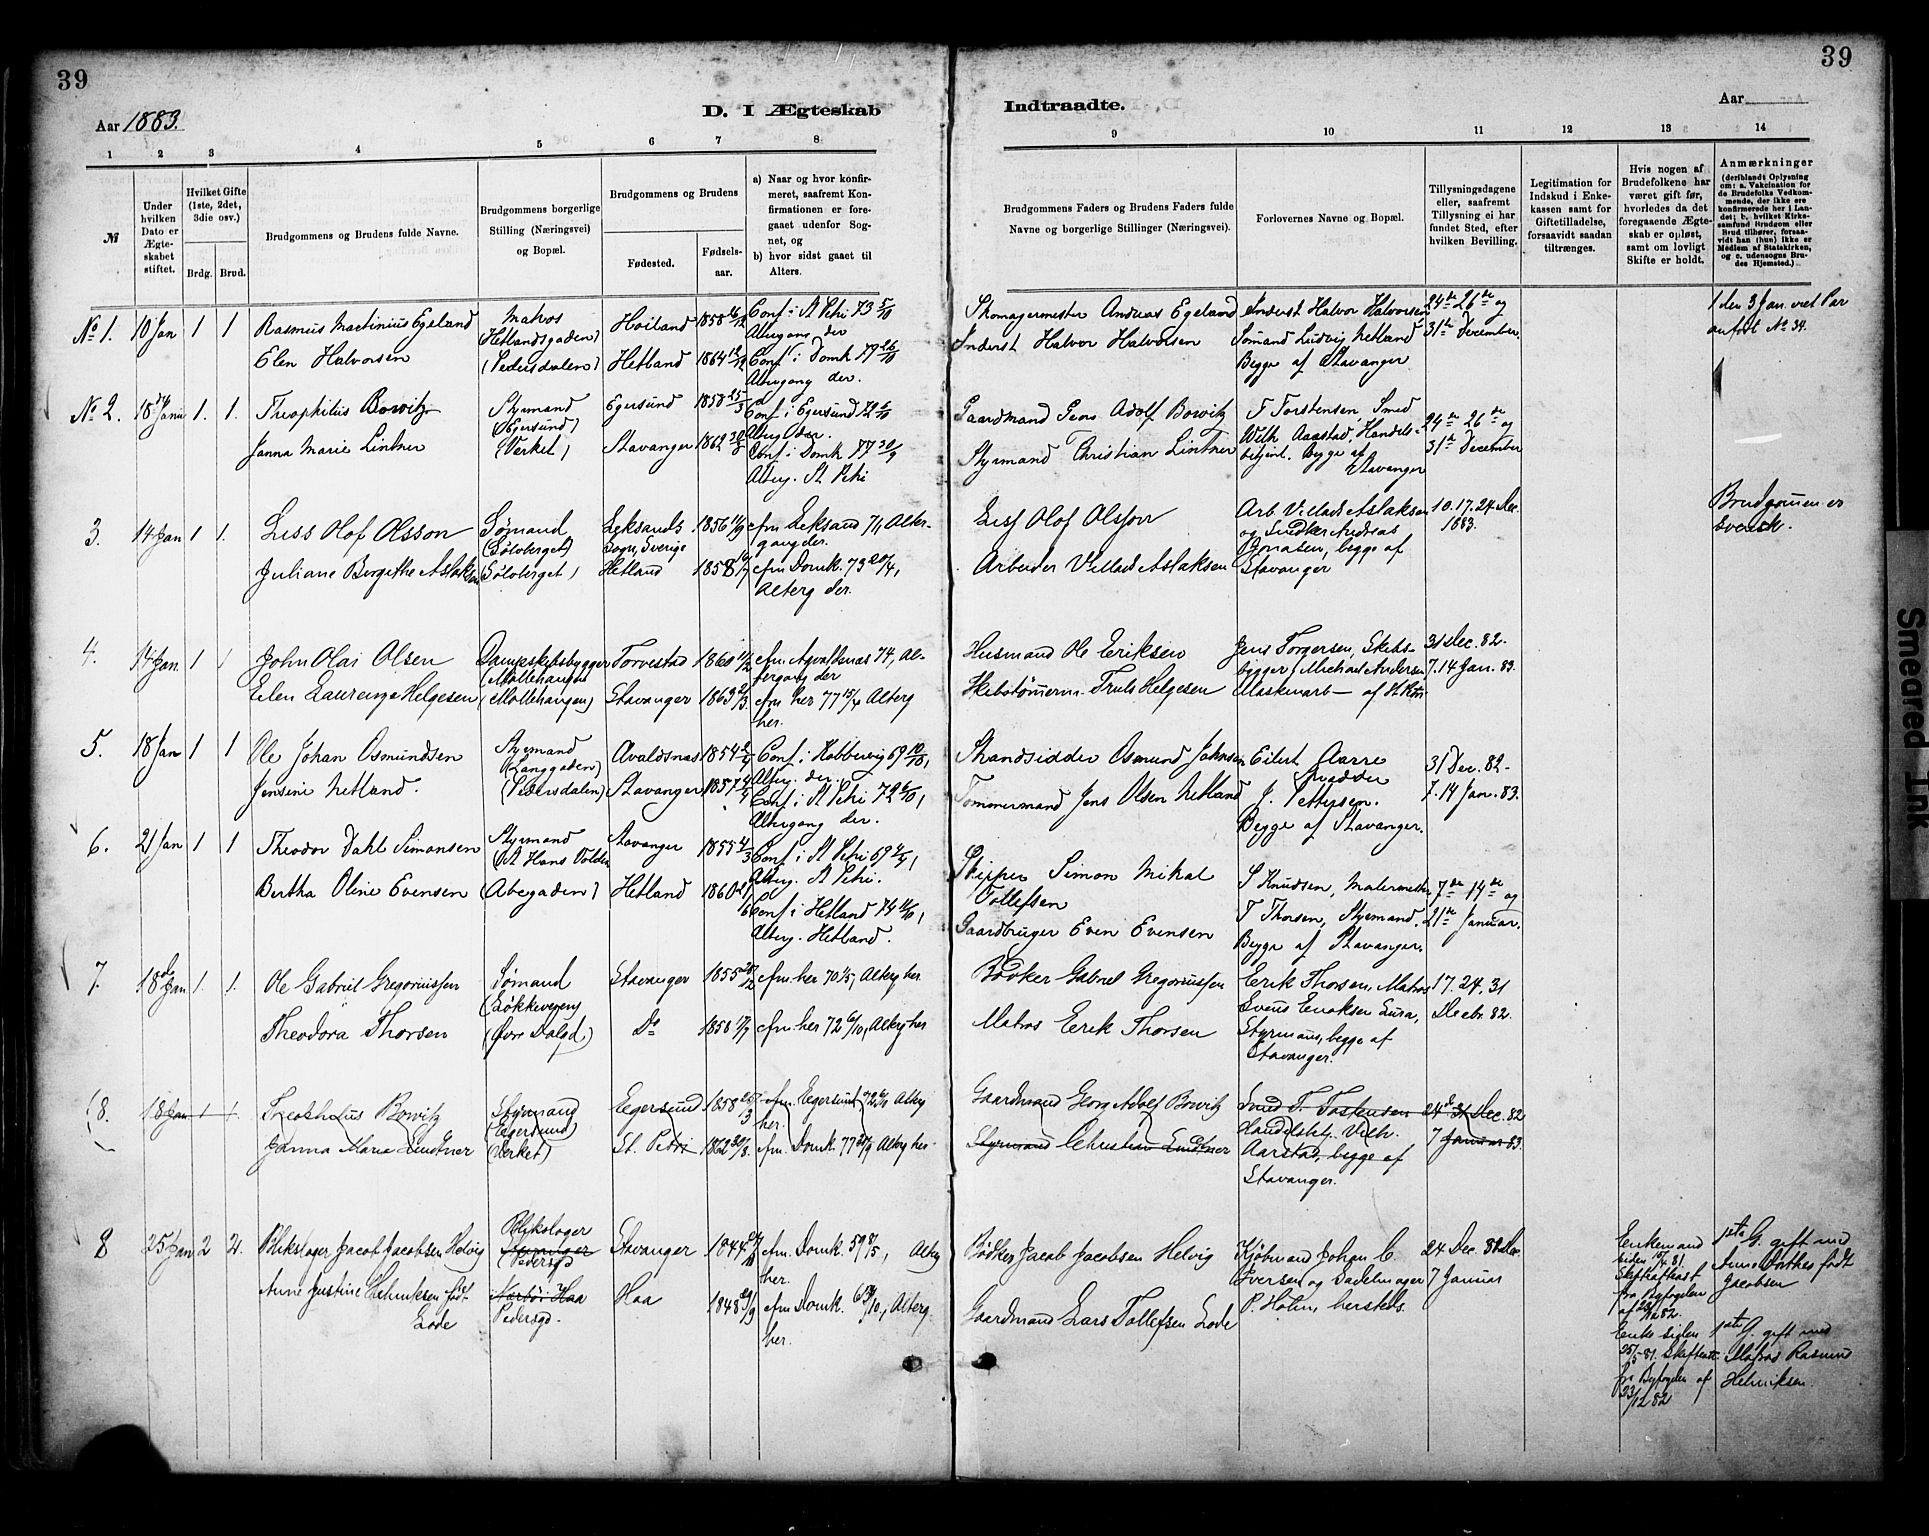 39
39
Aar 1883.
D. I Ægteskab
Indtraadte.
Aar
1 2 3 4 5 6 7 8
9 10 11 12 13 14
№
Under hvilken Dato er Ægteskabet stiftet.
Hvilket Gifte (1ste, 2det, 3die osv.)
Brdg. Brud.
Brudgommens og Brudens fulde Navne.
Brudgommens borgerlige Stilling (Næringsvei) og Bopæl.
Brudgommens og Brudens
Fødested.
Fødselsaar.
a) Naar og hvor konfirmeret, saafremt Konfirmationen er foregaaet udenfor Sognet, og
b) hvor sidst gaaet til Alters.
Brudgommens Faders og Brudens Faders fulde Navne og borgerlige Stillinger (Næringsvei).
Forlovernes Navne og Bopæl.
Tillysningsdagene eller, saafremt Tillysning ei har fundet Sted, efter hvilken Bevilling.
Legitimation for Indskud i Enkekassen samt for Giftetilladelse, forsaavidt saadan tiltrænges.
Hvis nogen af Brudefolkene har været gift før, hvorledes da det foregaaende Ægteskab er opløst, samt om lovligt Skifte er holdt.
Anmærkninger
(deriblandt Oplysning om: a. Vakcination for de Brudefolks Vedkommende, der ikke ere konfirmerede her i Landet; b. hvilket Kirkesamfund Brudgom eller Brud tilhører, forsaavidt han (hun) ikke er Medlem af Statskirken, og c. udensogns Brudes Hjemsted.)
No 1. 10 Jan 1 1 Rasmus Martinius Egeland Matros (Hetlandsgaden) Hoiland 1858 Conf i St Petri 73 5/10 Altergang der
Skomagermester Andreas Egeland Inderst Halvor Halvorsen 24de 26de og
1 den 3 Jan. viet Par anført No 34.
Elen Halvorsen (Pedersdalen) Hetland 1864 Conf i Domk 79 26/10 Altergang der.
Inderst Halvor Halvorsen Sømand Ludvig Netland 31te December.
Begge af Stavanger
No 2. 18de Janu 1. 1. Theophilus Bowitz Styrmand (Egersund) Egersund 1858 25/3 Conf i Egersund 72 6/10 Alterg der.
Gaardmand Georg Adolf Bowitz T Torstensen, Smed 24de 26de og
Janna Marie Lintner (Verket) Stavanger 1862 30/8 Conf i Domk 77 30/9 Alterg. St Petri
Styrmand Christian Lintner Wilh Aarstad, Handelsbetjent. Begge af Stavanger 31te December
3. 14 Jan 1 1. Liss Olof Olsson Sømand (Sølvberget) Leksands Sogn, Sverige 1856 11/9 cfm Leksand 71, Altergang der.
Liss Olof Olsson Arb Villads Aslaksen og Snedker Andreas Jonasen, begge af Stavanger 10. 17. 24. Dec. 1883.
Brudgommen er svensk.
Juliane Birgithe Aslaksen (Sølvberget) Hetland 1858 cfm Domk. 73 20/4, Alterg der.
Arbeider Villads Aslaksen
4. 14 Jan 1 1 John Olai Olsen Dampskibsbygger (Møllehaugen) Torvestad 1860 11/12 cfm Avaldsnæs 74, Altergang der
Husmand Ole Eriksen Jens Torgersen, Skibsbygger, Michael Andersen 31 Dec. 82.
Elen Laurenze Helgesen (Møllehaugen) Stavanger 1863 cfm her 77 15/4 Alterg her.
Skibstømerm. Truls Helgesen Maskinarb 7. 14 Jan. 83.
5. 18 Jan 1 1 Ole Johan Osmundsen Styrmand (Langgaden) Avaldsnæs 1854 Conf. i Kobbervig 69 10/10, Alterg. der.
Strandsidder Osmund Johnsen Eilert Aarre 31 Dec. 82.
Jensine Netland. (Pedersdalen) Stavanger 1857 Conf i St Petri 72 6/10, Altergang der.
Tømmermand Jens Olsen Netland J. Pettersen. 7. 14 Jan. 83.
Begge af Stavanger.
6. 21 Jan 1 1 Theodor Dahl Simonsen Styrmand (St Hans Volden) Stavanger 1855 4/3 Conf i St Petri 69 4/4, Alterg. St Petri.
Skipper Simon Mikal Tollefsen S Knudsen, Malermester 7de 14de og
Bertha Oline Evensen (Abegaden) Hetland 1860 Conf i Hetland 74 11/10, Alterg. Hetland.
Gaardbruger Even Evensen T Thorsen, Styrmand. 21de Januar.
Begge af Stavanger.
7. 18de Jan 1 1. Ole Gabriel Gregoriussen Sømand (Løkkeveien) Stavanger 1855 28/12 cfm. her 70 1/5, Alterg her
Bødker Gabriel Gregoriussen Erik Thorsen, Matros 17. 24. 31
Theodora Thorsen (Øvr Dalgd) Do 1858 17/7 cfm. her 72 6/10, Alterg her
Matros Erik Thorsen Svend Enoksen Lura, Styrmand, begge af Stavanger. Decbr. 82.
(8. 18 Jan 1 1. Theophilus Bowitz Styrmand (Egersund) Egersund 1858 25/3 cfm. Egersund 72 6/10 Alterg her.
Gaardmand Georg Adolf Bowitz Smed T. Torstensen 24de 31 Dec. 82
Janna Marie Lindtner (Verket) St. Petri 1862 30/8. cfm. Domk. 77 30/9 Alterg her
Styrmand Christian Lindtner Handelsbtj. Vilh. Aarstad, begge af Stavanger. 7 Januar 83.
8 25 Jan 2 2. Blikslager Jacob Jacobsen Helvig Blikslager Pedersgd Stavanger 1844 cfm. Domk. 59 8/5, Alterg her.
Bødker Jacob Jacobsen Helvig Kjøbmand Johan C. Iversen og Sadelmager P. Holm, hersteds. 24 Dec. 82 7 Januar
Enkemand siden 17/4 81. Skifteattest fra Byfogden af 82.
1ste G. gift med Anne Dorthea født Jacobsen
Anne Justine Henriksen født Lode Nærbø Haa Pedersgd. Haa 1848 29/9 cfm. Domk. 10, Alterg. her.
Gaardmand Lars Tollefsen Lode
Enke siden 25/5 81. Skifteatt. fra Byfogden af 23/12 82
1ste G. gift med Matros Rasmus Henriksen.
Smeared Ink